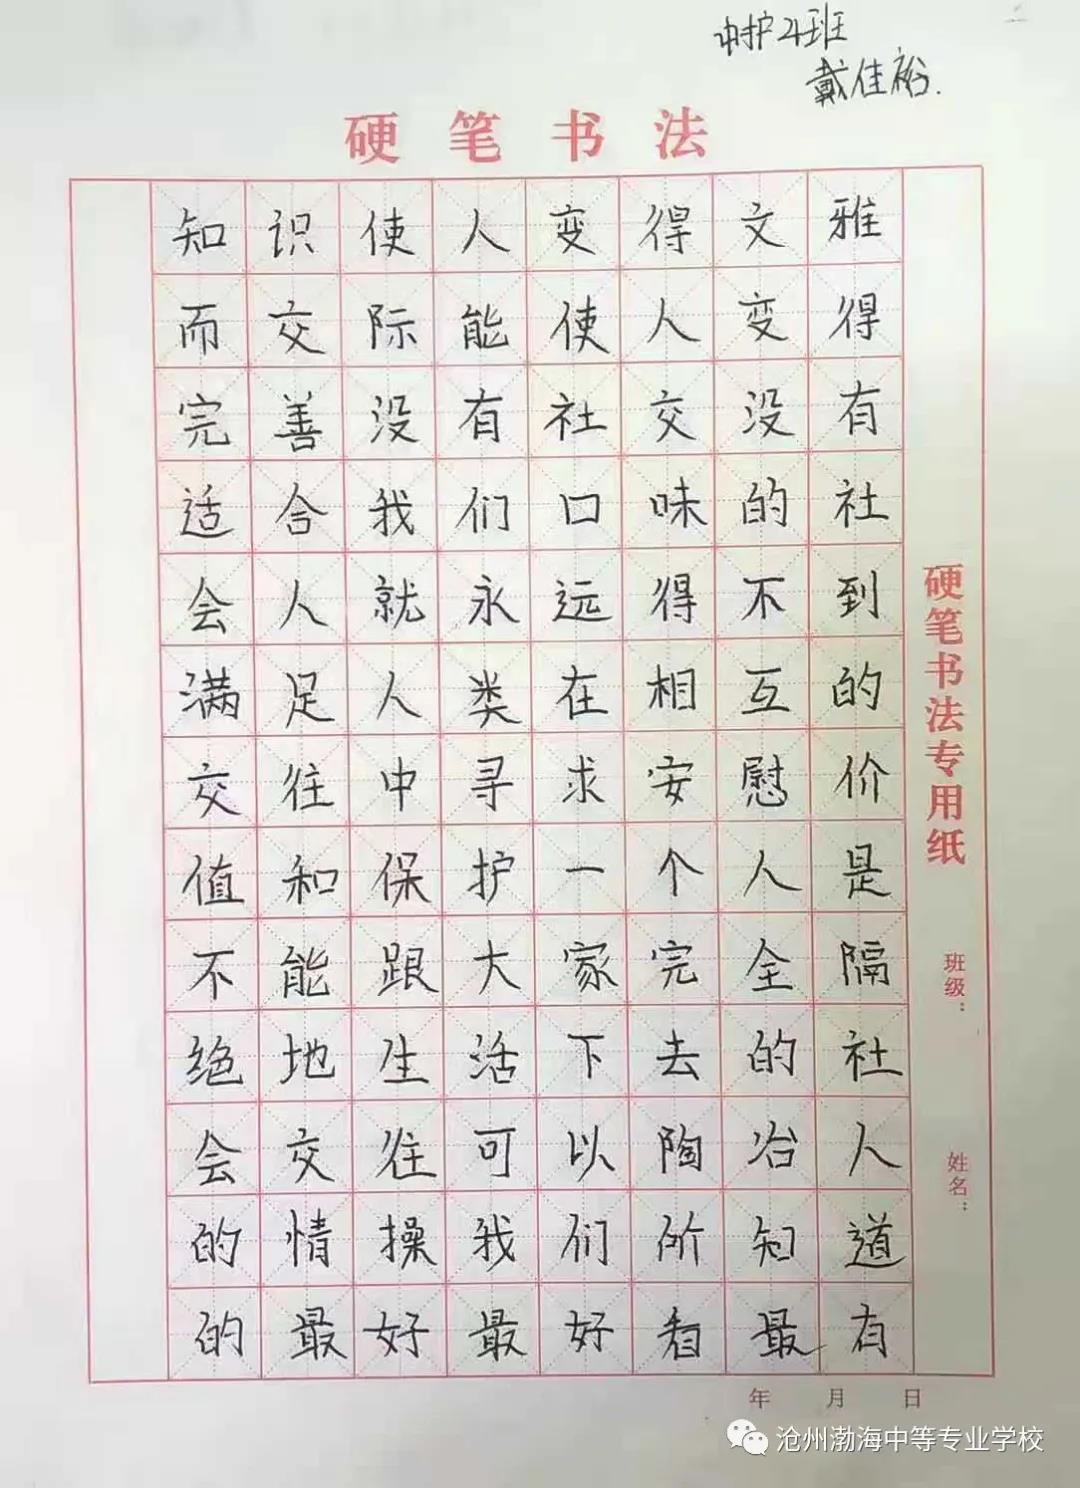 中护4班
戴佳裕.
硬笔书法
知识使人变得文雅
而交际能使人变得
完善没有社交没有
适合我们口味的社
会人就永远得不到
满足人类在相互的
交往中寻求安慰价
值和保护一个人是
不能跟大家完全隔
绝地生活下去的社
会交往可以陶冶人
的情操我们所知道
的最好最好看最有
硬笔书法专用纸
班级：
姓名：
年 月 日
沧州渤海中等专业学校